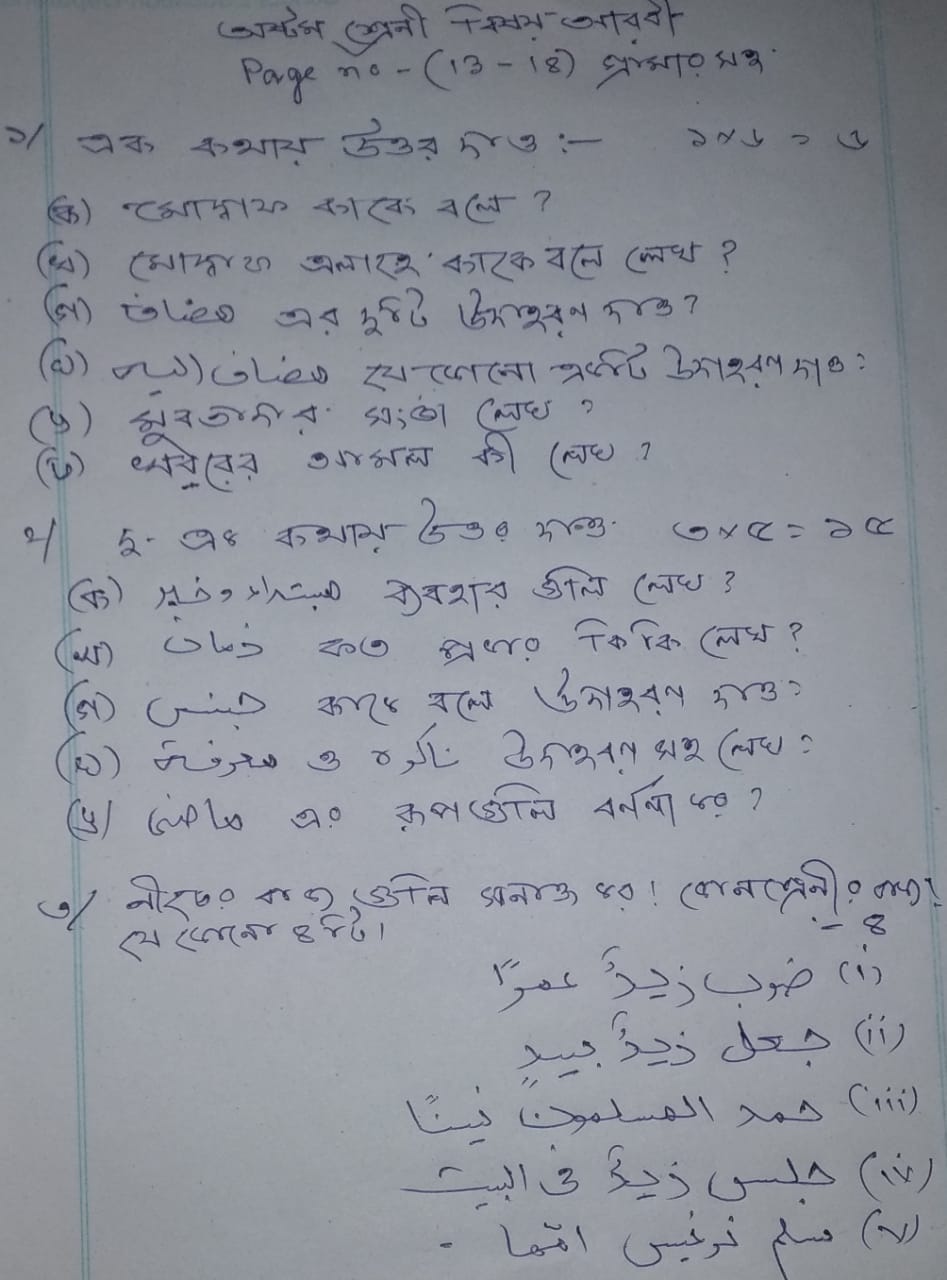 অষ্টম শ্রেনী বিষয় আরবী
Page no - (13 - 18)
১/ এক কথায় উত্তর দাও :- ১×৬ = ৬
(ক) মোদ্বাফ কাকে বলে ?
(খ) মোদ্বাফ এলাইহ কাকে বলে লেখ ?
(গ) مضاف এর দুটি উদাহরণ দাও ?
(ঘ) مضاف اليه যেকোনো একটি উদাহরণ দাও ?
(ঙ) মুবতাদার সংজ্ঞা লেখ ?
(চ) খবরের আমল কী লেখ ?
২/ দু-এক কথায় উত্তর দাও ৩×৫ = ১৫
(ক) مبتداء و خبر ব্যবহার গুলি লেখ ?
(খ) কত প্রকার কি কি লেখ ?
(গ) جنس কাকে বলে উদাহরণ দাও ?
(ঘ) معرفة ও نكره উদাহরণ সহ লেখ ?
(ঙ) এর রূপগুলি বর্ননা কর ?
৩/ নীচের বাক্য গুলি সনাক্ত কর। কোন শ্রেনীর বাক্য ?
যে কোনো ৪টি। :- ৪
(i) ضرب زيدٌ عمرًا
(ii) جعل زيدٌ
(iii) حمد المسلمون
(iv) جلس زيدٌ فى البيت
(v)